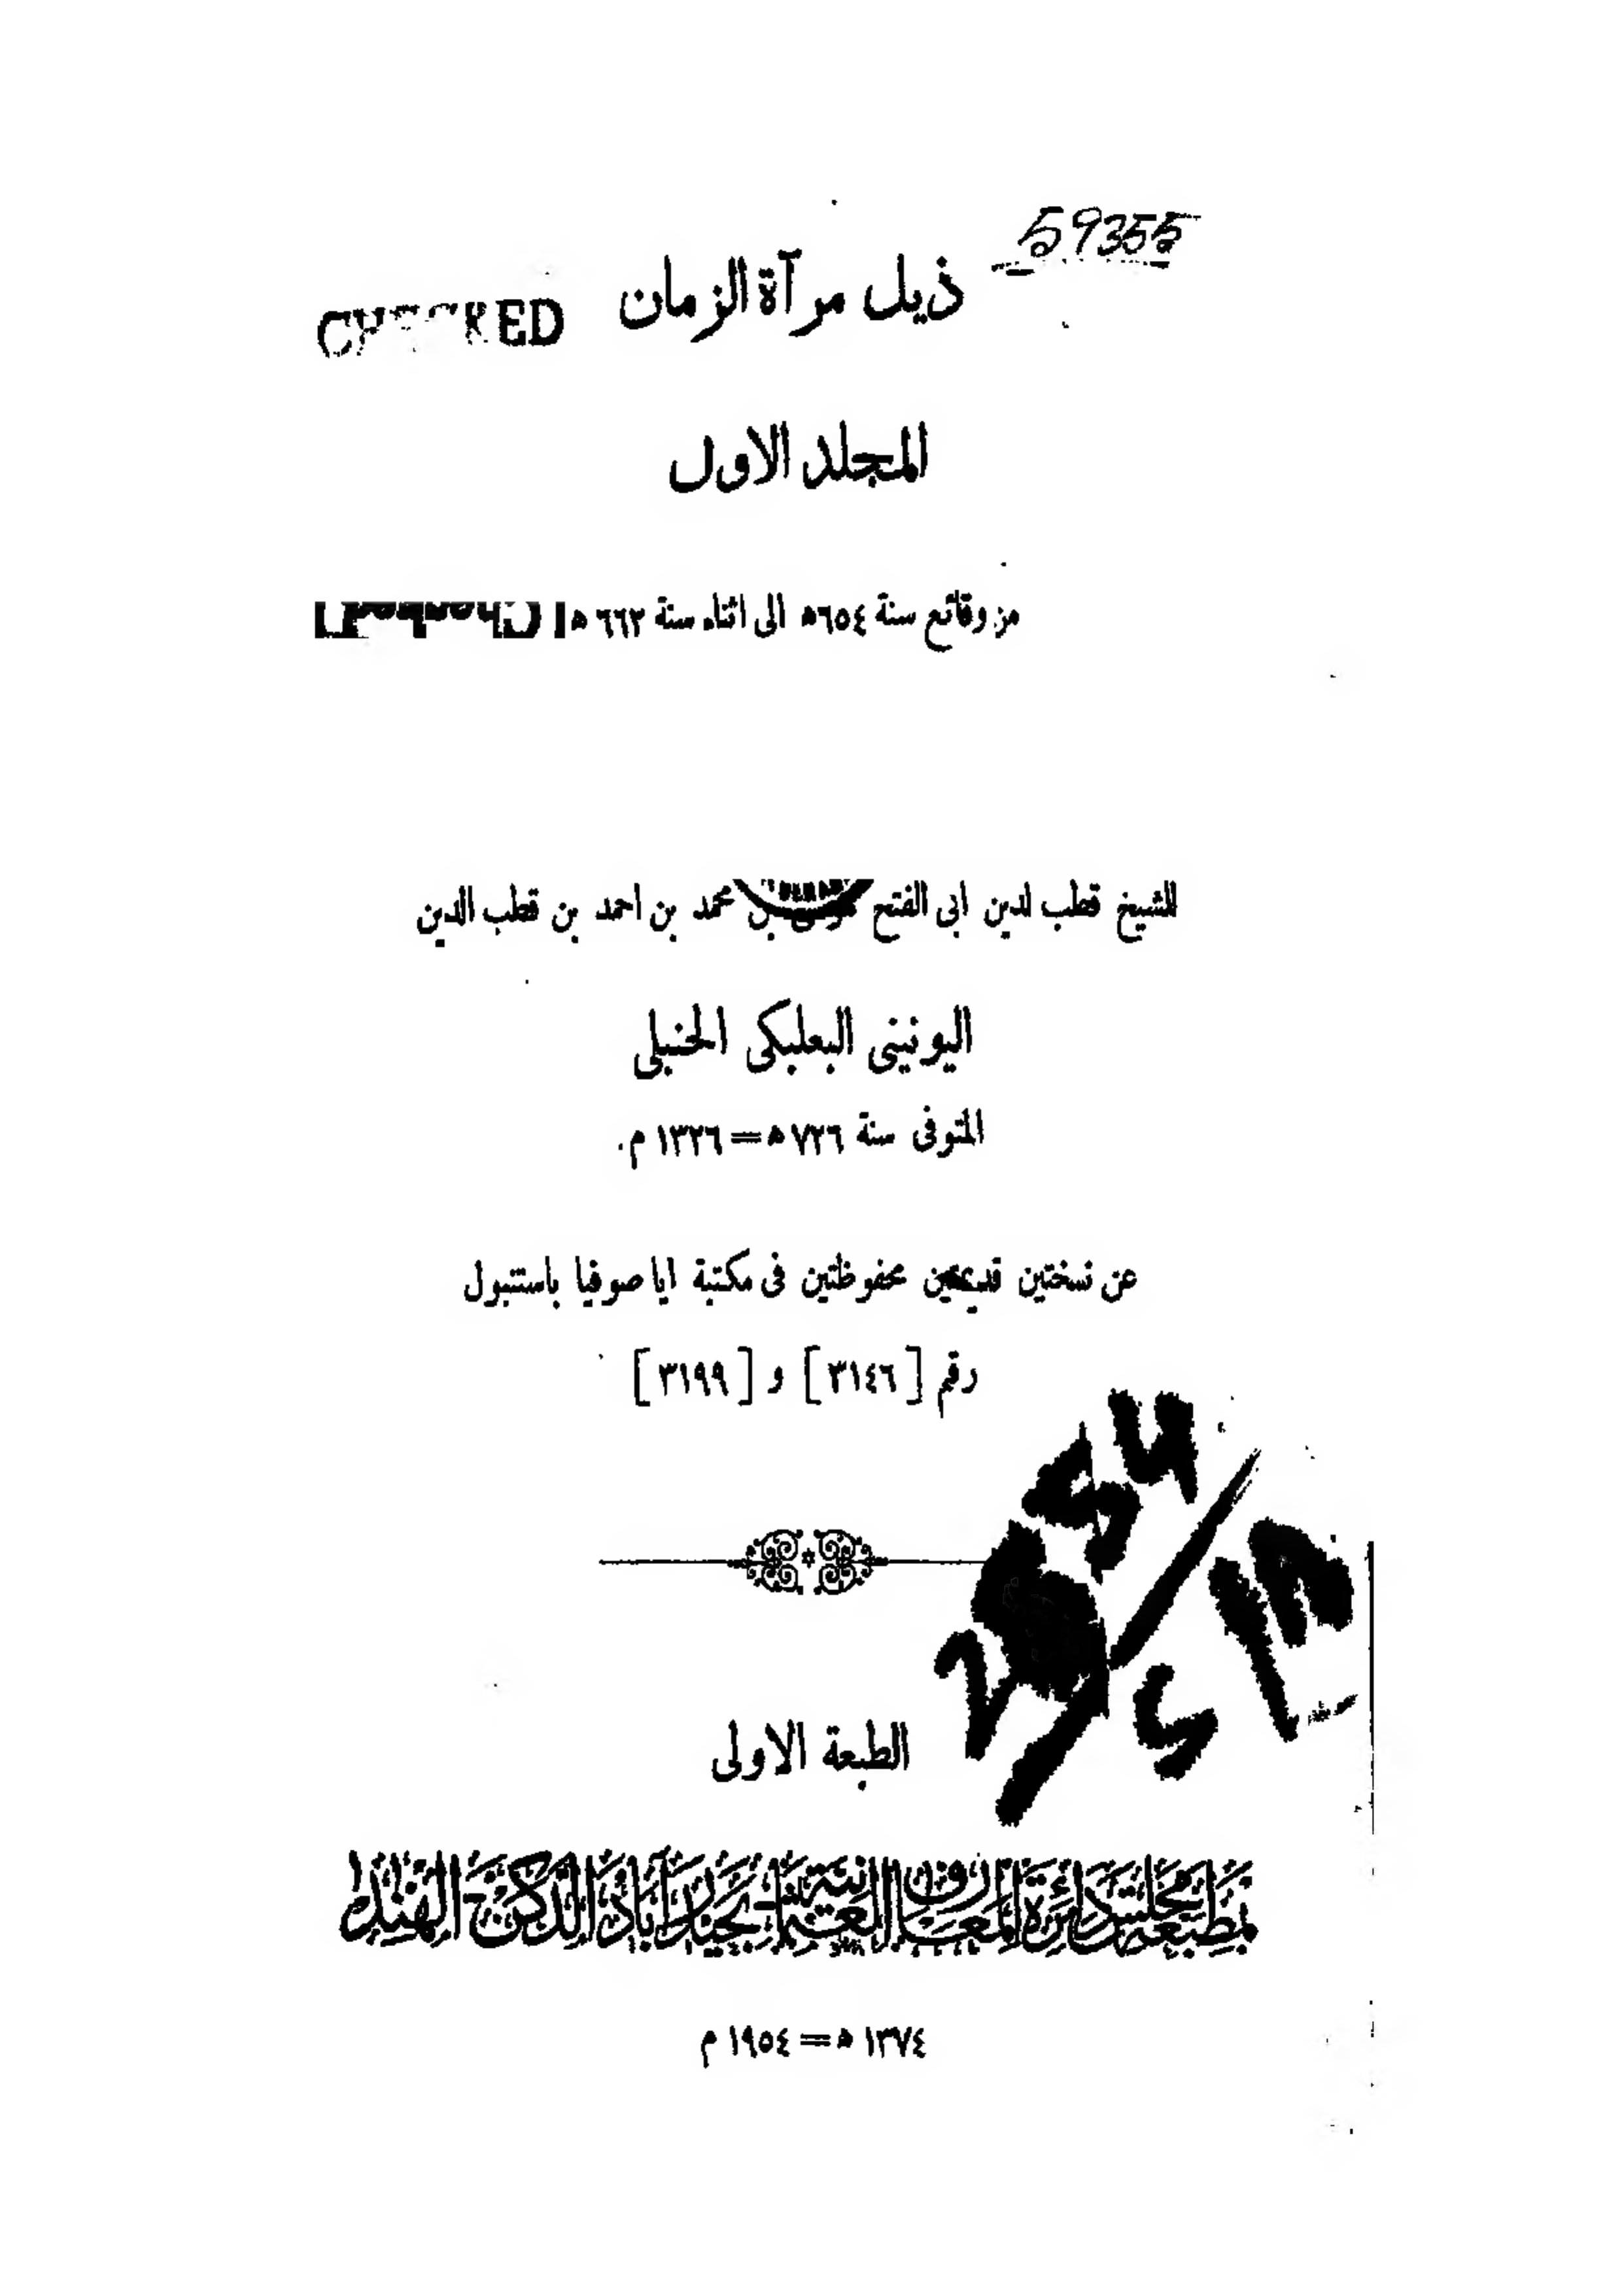 59355
ذيل مرآة الزمان
CHECKED
المجلد الاول
من وقائع سنة ٦٥٤ه الى اثناء سنة ٦٦٢ ه
Checked
للشيخ قطب لدين ابى الفتح موسى بن محمد بن احمد بن قطب الدين
اليونينى البعلبكى الحنبلى
المتوفى سنة ٧٢٦ ه = ١٣٢٦ م.
عن نسختين قديمتين محفوظتين فى مكتبة ايا صوفيا باستنبول
رقم [٣١٤٦] و [٣١٩٩]
الطبعة الاولى
بمطبعة مجلس دائرة المعارف العثمانية بحيدرآباد الدكن الهند
١٣٧٤ ه = ١٩٥٤ م